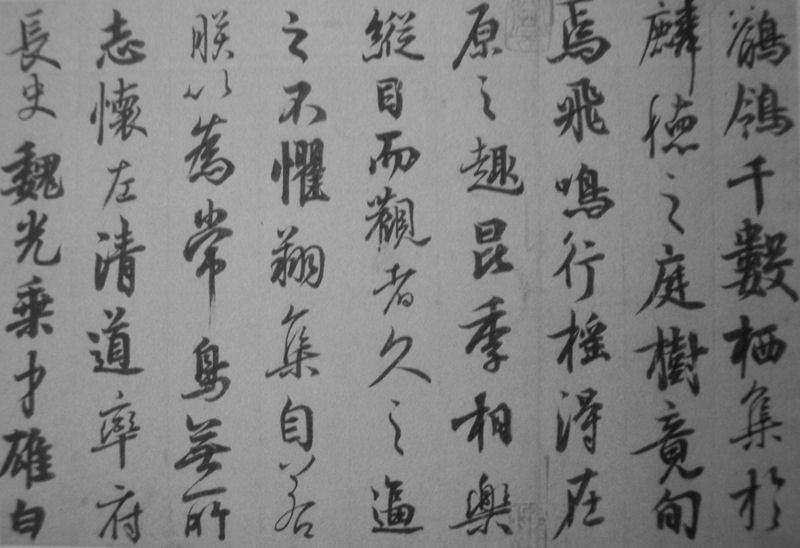 鶺鴒千數栖集於
麟德之庭樹竟旬
焉飛鳴行搖得在
原之趣昆季相樂
縱目而觀者久之逼
之不懼翔集自若
朕以為常鳥無所
志懷左清道率府
長史魏光乘才雄白